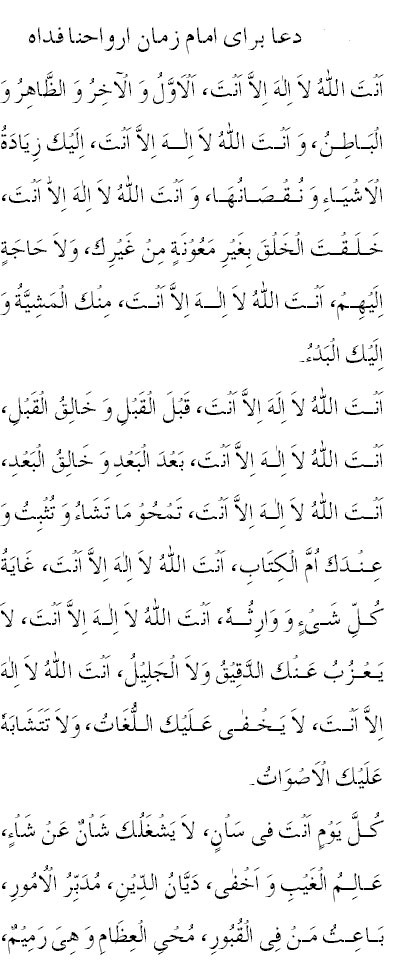 دعا برای امام زمان ارواحنا فداه
اَنْتَ اللهُ لاَ اِلٰهَ اِلاَّ اَنْتَ، اَلْاَوَّلُ وَ الْآخِرُ وَ الظَّاهِرُ وَ
الْبَاطِنُ، وَ اَنْتَ اللهُ لاَ اِلٰهَ اِلاَّ اَنْتَ، اِلَيْكَ زِيَادَةُ
الْاَشْيَاءِ وَ نُقْصَانُهَا، وَ اَنْتَ اللهُ لاَ اِلٰهَ اِلاَّ اَنْتَ،
خَلَقْتَ الْخَلْقَ بِغَيْرِ مَعُوْنَةٍ مِنْ غَيْرِكَ، وَلاَ حَاجَةٍ
اِلَيْهِمْ، اَنْتَ اللهُ لاَ اِلٰهَ اِلاَّ اَنْتَ، مِنْكَ الْمَشِيَّةُ وَ
اِلَيْكَ الْبَدْءُ.
اَنْتَ اللهُ لاَ اِلَهَ اِلاَّ اَنْتَ، قَبْلَ الْقَبْلِ وَ خَالِقُ الْقَبْلِ،
اَنْتَ اللهُ لاَ اِلٰهَ اِلاَّ اَنْتَ، بَعْدَ الْبَعْدِ وَ خَالِقُ الْبَعْدِ،
اَنْتَ اللهُ لاَ اِلٰهَ اِلاَّ اَنْتَ، تَمْحُوْ مَا تَشَاءُ وَ تُثْبِتُ وَ
عِنْدَكَ اُمَّ الْكِتَابِ، اَنْتَ اللهُ لاَ اِلٰهَ اِلاَّ اَنْتَ، غَايَةُ
كُلِّ شَيْءٍ وَ وَارِثُهُ، اَنْتَ اللهُ لاَ اِلٰهَ اِلاَّ اَنْتَ، لاَ
يَعْزُبُ عَنْكَ الدَّقِيْقُ وَلاَ الْجَلِيْلُ، اَنْتَ اللهُ لاَ اِلٰهَ
اِلاَّ اَنْتَ، لاَ يَخْفٰى عَلَيْكَ اللُّغَاتُ، وَلاَ تَتَشَابَهُ
عَلَيْكَ الْاَصْوَاتُ.
كُلَّ يَوْمٍ اَنْتَ فِى سَاْنٍ، لاَ يَشْغَلُكَ شَاْنٌ عَنْ شَاْءٍ،
عَالِمُ الْغَيْبِ وَ اَخْفٰى، دَيَّانُ الدِّيْنِ، مُدَبِّرُ الْاُمُورِ،
بَاعِثُ مَنْ فِى الْقُبُورِ، مُحْيِ الْعِظَامِ وَ هِىَ رَمِيْمٌ،